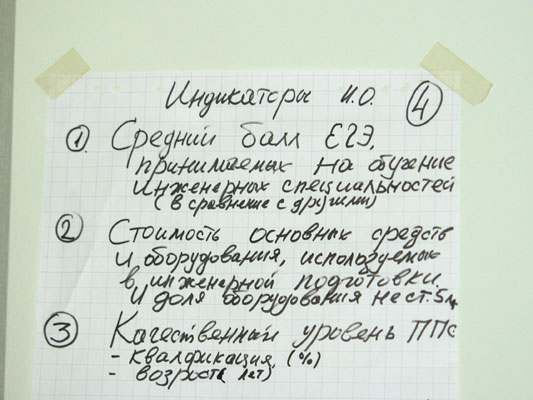 Индикаторы И.О. 4
1. Средний балл ЕГЭ,
принимаемых на обучение
инженерных специальностей
(в сравнение с другими)
2 Стоимость основных средств
и оборудования, используемых
в инженерной подготовки
и доля оборудования не ст. 5 л.
3 Качественный уровень ППС
- квалфикация, (%)
- возраст (лет)